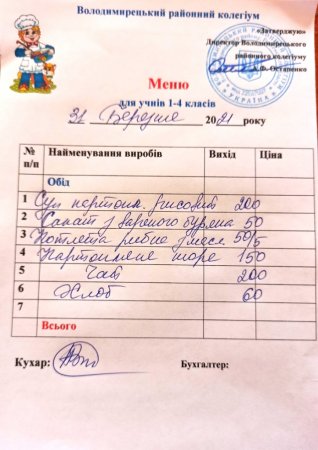 Володимирецький районний колегіум
«Затверджую»
Директор Володимирецького
районного колегіуму
А.Ф. Остапенко
Меню
для учнів 1-4 класів
31 Березня 2021 року
№ п/п Найменування виробів Вихід Ціна
Обід
1 Суп картопл. рисовий 200
2 Салат з вареного буряка 50
3 Котлета рибна з масл 50/5
4 Картопляне пюре 150
5 Чай 200
6 Хліб 60
7
Всього
Кухар: Бухгалтер: